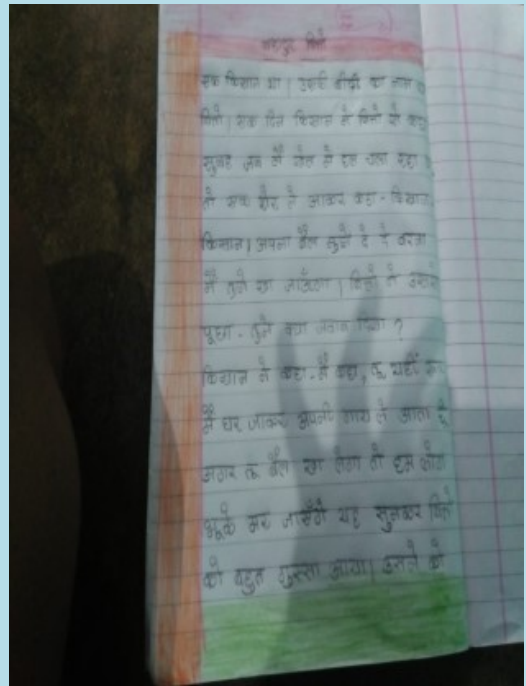 बहादुर बित्तो
एक किसान था। उसकी बीवी का नाम था
बित्तो। एक दिन किसान ने बित्तो से कहा
सुबह जब मैं खेत में हल चला रहा
तो एक शेर ने आकर कहा - किसान
किसान। अपना बैल मुझे दे दे वरना
मैं तुझे खा जाऊँगा। बित्तो ने उससे
पूछा - तूने क्या जवाब दिया?
किसान ने कहा - मैं कहा, तू यहीं रूक
मैं घर जाकर अपनी गाय ले आता हूँ
अगर तू बैल खा लेगा तो हम लोग
भूखे मर जाएँगे यह सुनकर बित्तो
को बहुत गुस्सा आया। उसने को